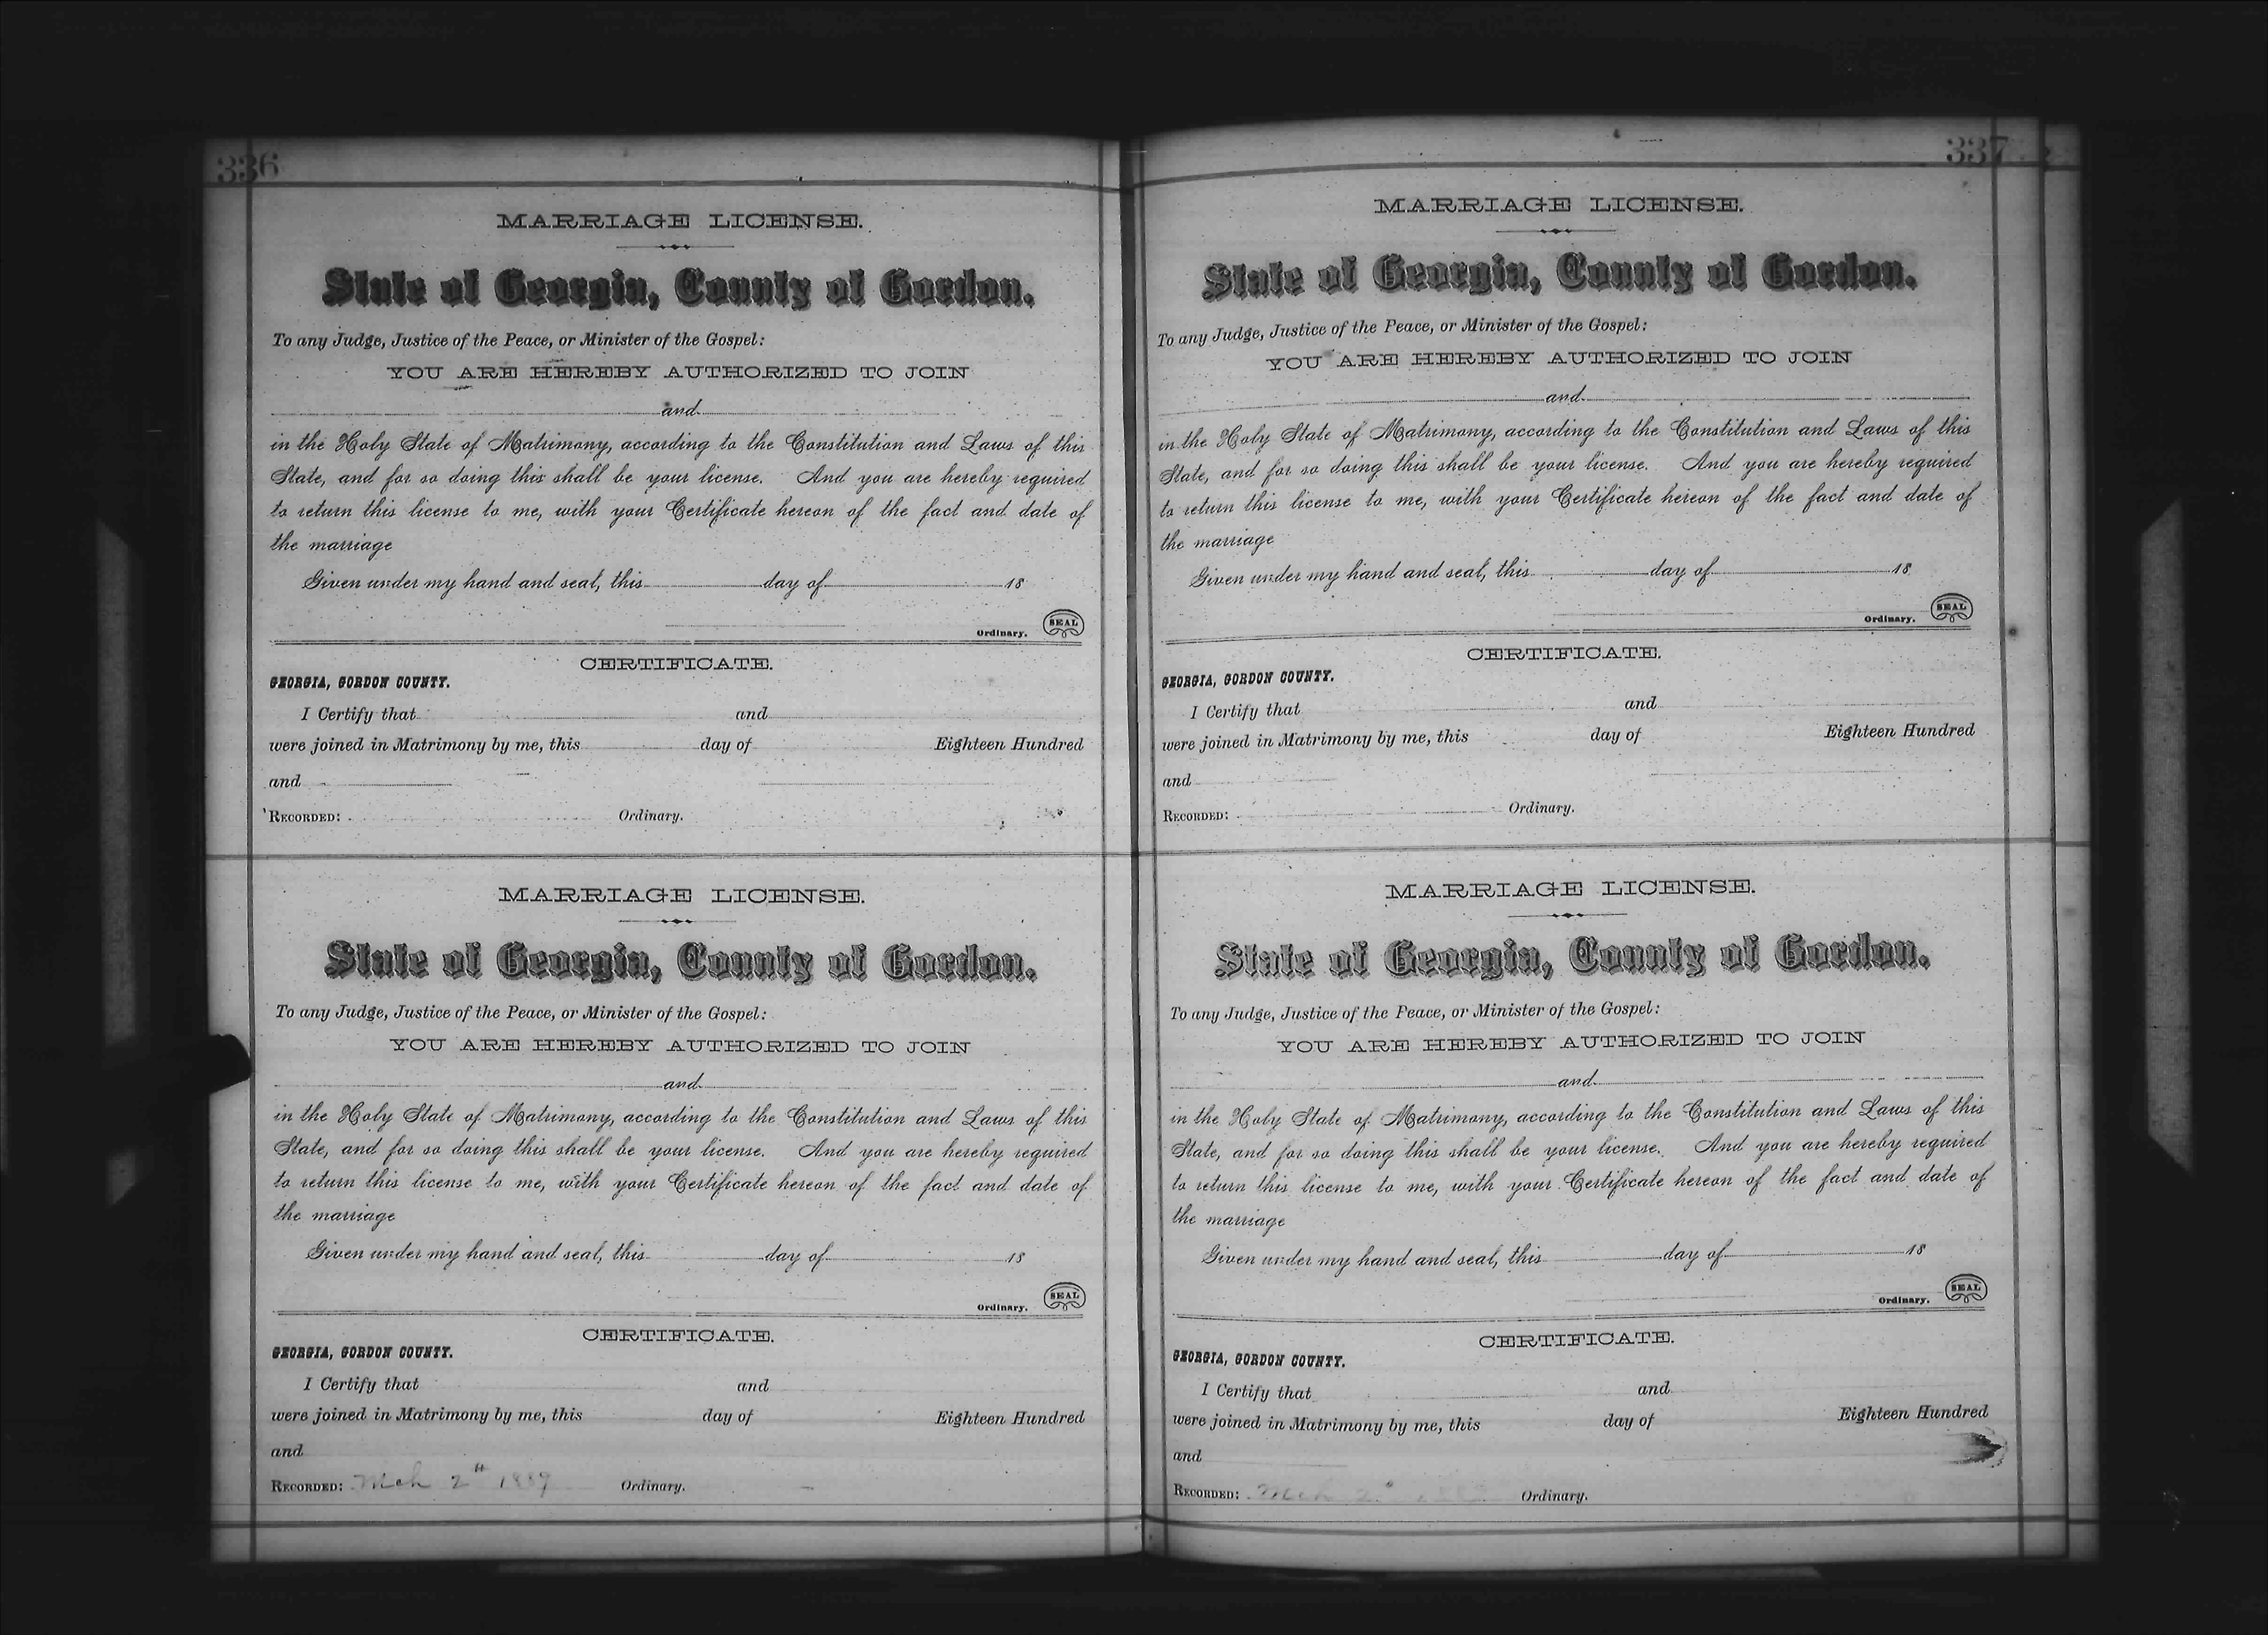 336
MARRIAGE LICENSE.
State of Georgia, County of Gordon.
To any Judge, Justice of the Peace, or Minister of the Gospel:
YOU ARE HEREBY AUTHORIZED TO JOIN
and
in the Holy State of Matrimony, according to the Constitution and Laws of this
State, and for so doing this shall be your license. And you are hereby required
to return this license to me, with your Certificate hereon of the fact and date of
the marriage
Given under my hand and seal, this day of 18
Ordinary. SEAL
CERTIFICATE.
GEORGIA, GORDON COUNTY.
I Certify that and
were joined in Matrimony by me, this day of Eighteen Hundred
and
RECORDED: Ordinary.
MARRIAGE LICENSE.
State of Georgia, County of Gordon.
To any Judge, Justice of the Peace, or Minister of the Gospel:
YOU ARE HEREBY AUTHORIZED TO JOIN
and
in the Holy State of Matrimony, according to the Constitution and Laws of this
State, and for so doing this shall be your license. And you are hereby required
to return this license to me, with your Certificate hereon of the fact and date of
the marriage
Given under my hand and seal, this day of 18
Ordinary. SEAL
CERTIFICATE.
GEORGIA, GORDON COUNTY.
I Certify that and
were joined in Matrimony by me, this day of Eighteen Hundred
and
RECORDED: Mch 2" 1889 Ordinary.
337
MARRIAGE LICENSE.
State of Georgia, County of Gordon.
To any Judge, Justice of the Peace, or Minister of the Gospel:
YOU ARE HEREBY AUTHORIZED TO JOIN
and
in the Holy State of Matrimony, according to the Constitution and Laws of this
State, and for so doing this shall be your license. And you are hereby required
to return this license to me, with your Certificate hereon of the fact and date of
the marriage
Given under my hand and seal, this day of 18
Ordinary. SEAL
CERTIFICATE.
GEORGIA, GORDON COUNTY.
I Certify that and
were joined in Matrimony by me, this day of Eighteen Hundred
and
RECORDED: Ordinary.
MARRIAGE LICENSE.
State of Georgia, County of Gordon.
To any Judge, Justice of the Peace, or Minister of the Gospel:
YOU ARE HEREBY AUTHORIZED TO JOIN
and
in the Holy State of Matrimony, according to the Constitution and Laws of this
State, and for so doing this shall be your license. And you are hereby required
to return this license to me, with your Certificate hereon of the fact and date of
the marriage
Given under my hand and seal, this day of 18
Ordinary. SEAL
CERTIFICATE.
GEORGIA, GORDON COUNTY.
I Certify that and
were joined in Matrimony by me, this day of Eighteen Hundred
and
RECORDED: Mch 2" Ordinary.